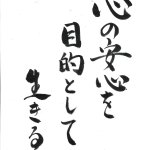 心の安心を
目的として
生きる